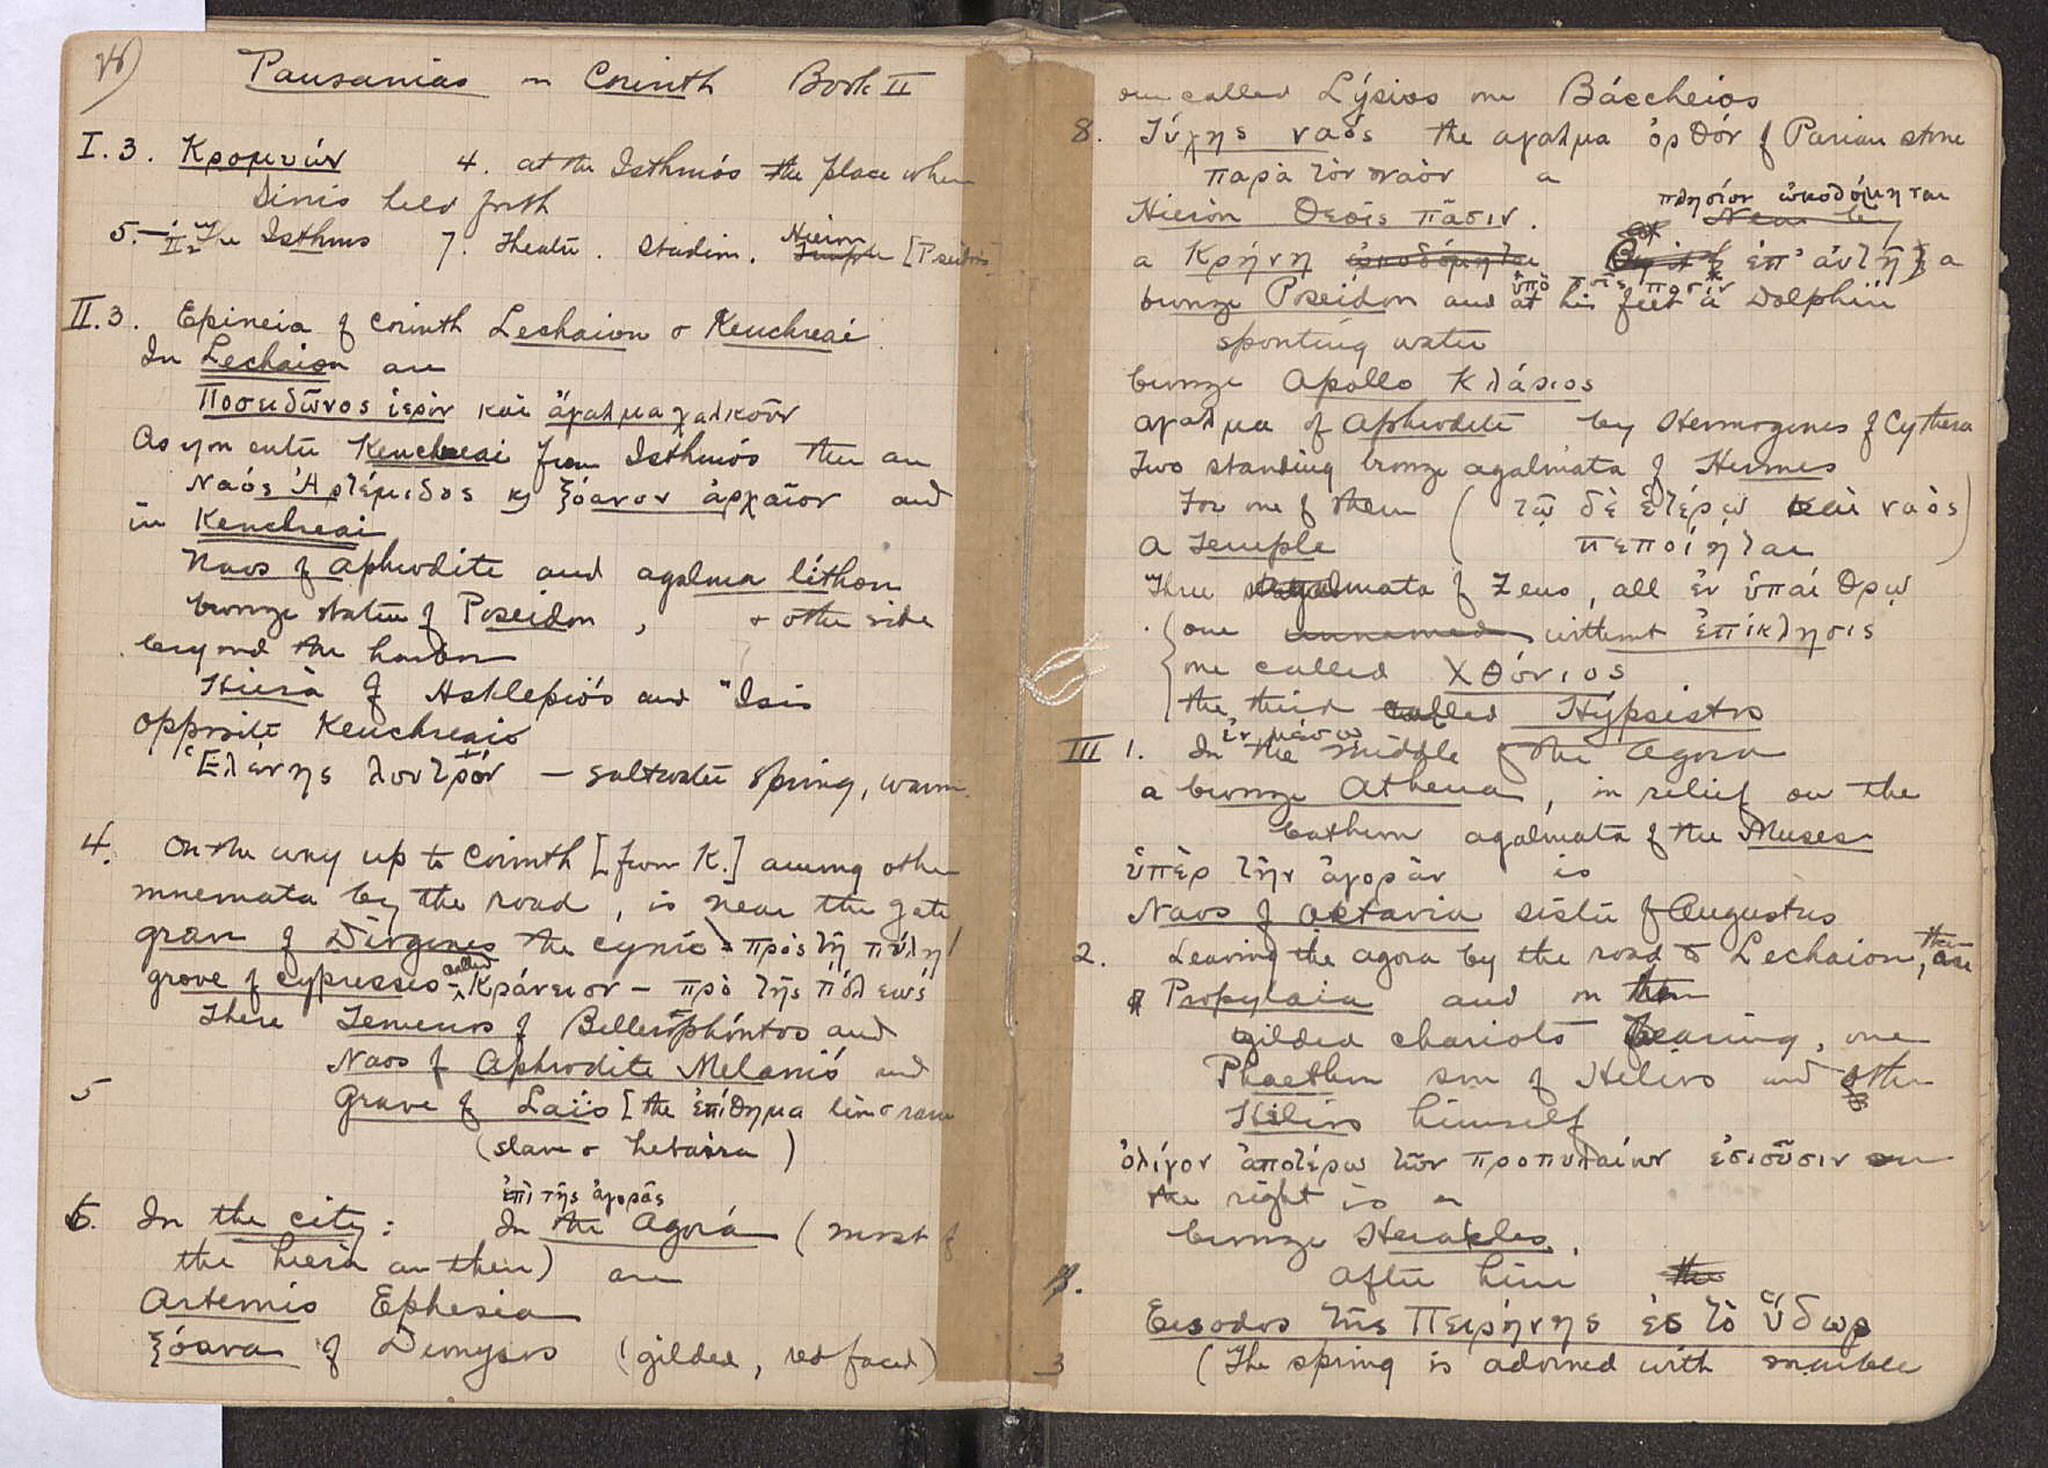 Pausanias on Corinth Book II
I. 3. Κρομυών 4. at the Isthmós the place where
Sinis held forth
5. The Isthmus 7. Theatre. Stadium. Hieron Temple [Poseidon
II. 3. Epineia of Corinth Lechaion & Kenchreaí
In Lechaion are
Ποσειδῶνος ἱερὸν καὶ ἄγαλμα χαλκοῦν
As you enter Kenchreai from Isthmós there are
Ναός Ἀρτέμιδος κ ξόανον ἀρχαῖον and
in Kenchreai
Naos of Aphrodite and agalma líthou
bronze statue of Poseidon, & other side
beyond the harbor
Hiera of Asklepiós and Isis
opposite Kenchreais
Ἑλένης λουτρόν – saltwater spring, warm.
4. On the way up to Corinth [from K.] among other
mnemata by the road, is near the gate
grave of Diogenes the cynic – πρὸς τῇ πύλῃ
grove of cypresses – called Κράνειον – πρὸ τῆς πόλεως
There Temenos of Bellerophóntos and
Naos of Aphrodite Melanis and
5 Grave of Laïs [the ἐπίθημα lion & ram
(slave & hetaira)
ἐπὶ τῆς ἀγορᾶς
6. In the city: In the Agorá (most of
the hiera are there) are
Artemis Ephesia
ξόανα of Dionysos (gilded, red faced)
one called Lýsios one Báccheios
8. Τύχης ναός the αγαλμα ὀρθόν of Parian stone
παρὰ τὸν ναὸν a
πλησίον ὠκοδόμηται
Hieròn Θεοῖς πᾶσιν. Near by
a Κρήνη ὠκοδόμηται ἐπ' αὐτῇ a
ὑπὸ τοῖς ποσὶν
bronze Poseidon and at his feet a Dolphin
spouting water
bronze Apollo Κλάριος
αγαλμα of Aphrodite by Hermogenes of Cythera
Two standing bronze agalmata of Hermes
For one of them (τῷ δὲ ἑτέρῳ καὶ ναὸς
a Temple πεποίηται)
Three agalmata of Zeus, all ἐν ὑπαίθρῳ
one unnamed without ἐπίκλησις
one called Χθόνιος
the third called Hýpsistos
ἐν μέσῳ
III 1. In the middle of the Agora
a bronze Athena, in relief on the
bathron agalmata of the Muses
ὑπὲρ τὴν ἀγορὰν is
Naos of Oktavia sister of Augustus
2. Leaving the agora by the road to Lechaion, there are
Propylaia and on them
gilded chariots bearing, one
Phaethon son of Helios and other
Helios himself
ὀλίγον ἀπωτέρω τῶν προπυλαίων ἐσιοῦσιν on
the right is a
bronze Herakles.
After him the
Εισοδος τῆς Πειρήνης ἐς τὸ ὕδωρ
3 (The spring is adorned with marble